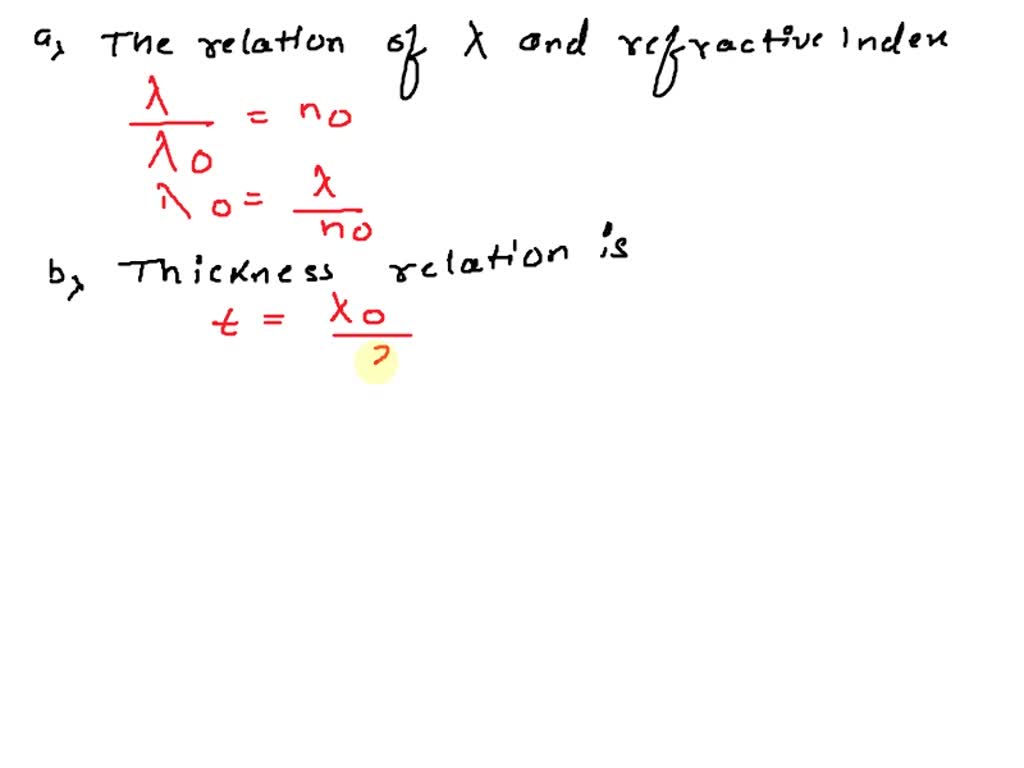 a, The relation of λ and refractive index
λ / λ0 = n0
λ0 = λ / n0
b, Thickness relation is
t = λ0 / 2